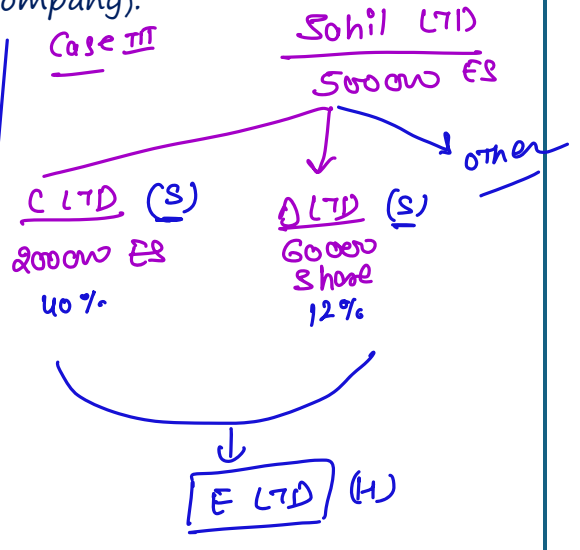 ompany).
Case III
Sohil LTD
500000 ES
other
C LTD (S)
200000 ES
40%
D LTD (S)
60000
Share
12%
E LTD (H)